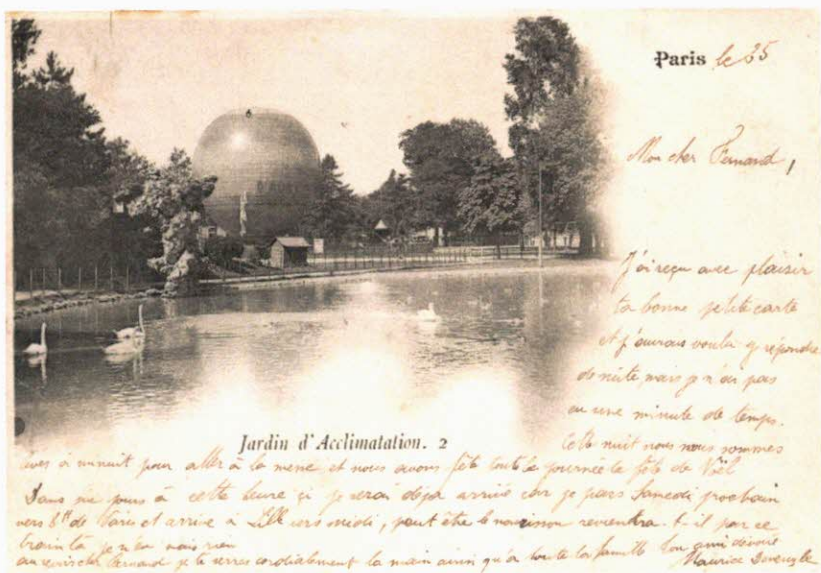 Paris le 25
Mon cher Fernand,
J'ai reçu avec plaisir
ta bonne petite carte
et j'aurais voulu y répondre
de suite mais je n'ai pas
eu une minute de temps.
Cette nuit nous nous sommes
Jardin d'Acclimatation. 2
levés à minuit pour aller à la messe et nous avons fêté toute la journée la fête de Noël
Dans six jours à cette heure ci je serai déjà arrivé car je pars Samedi prochain
vers 8h de Paris et arrive à Lille vers midi, peut être le reviendra-t-il par ce
train là je n'en sais rien
au revoir cher Fernand je te serres cordialement la main ainsi qu'à toute la famille Ton ami dévoué
Maurice